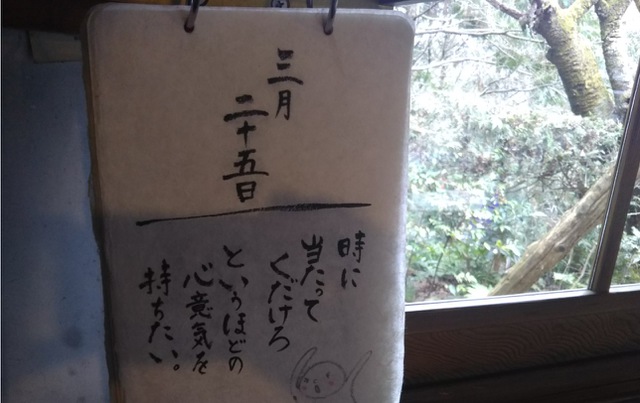 三月
二十五日
時に
当たって
くだけろ
というほどの
心意気を
持ちたい。